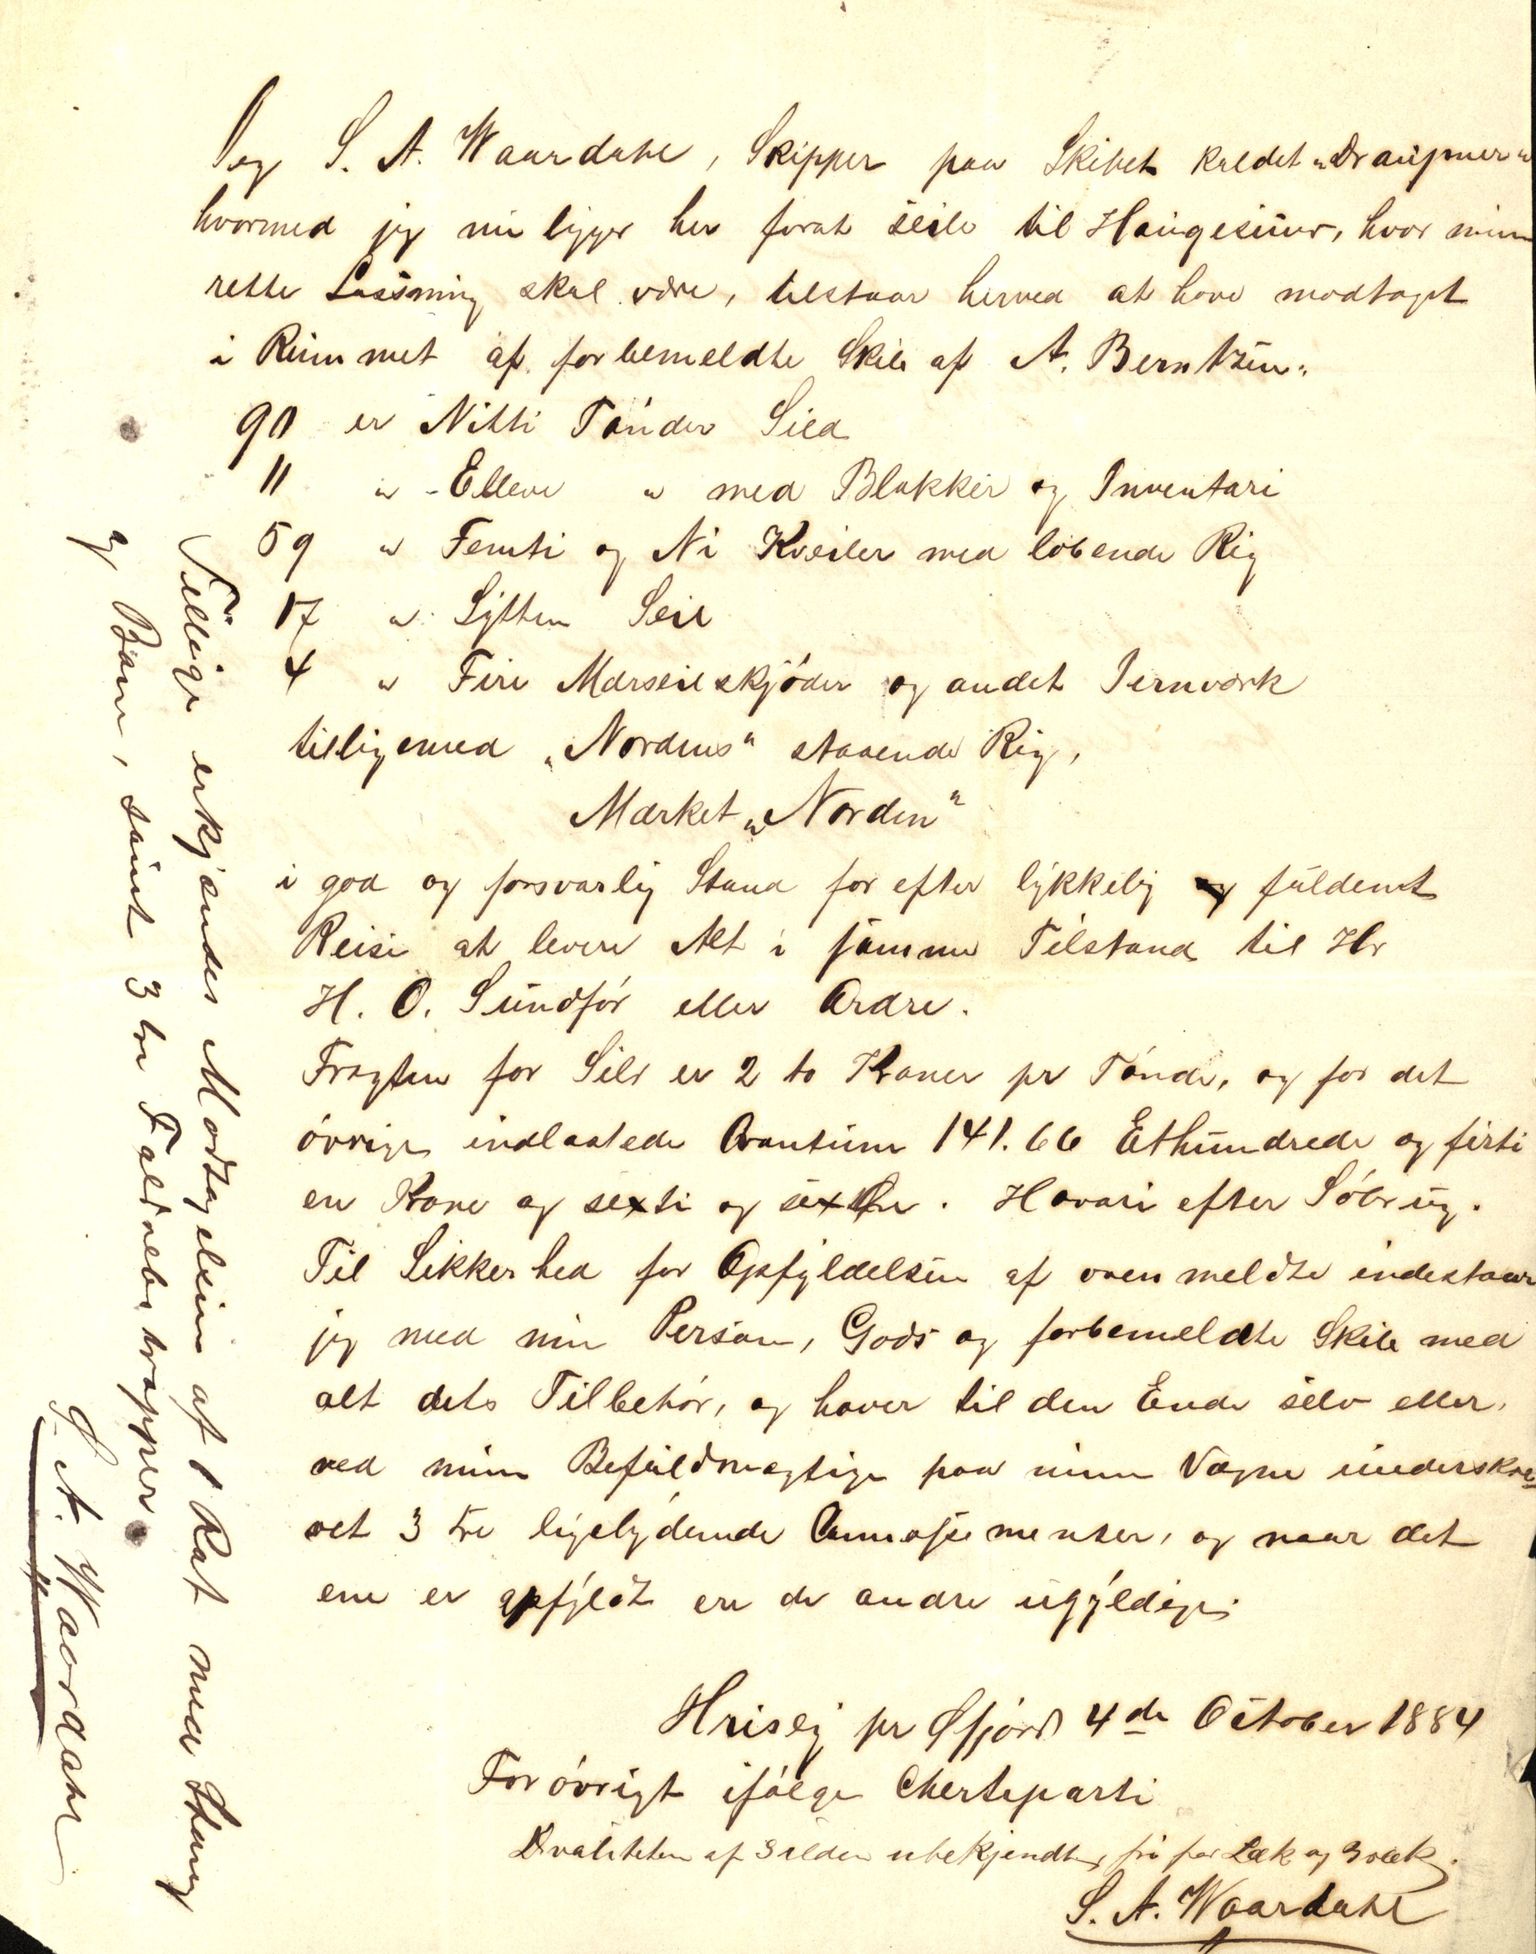 Jeg S. A. Waardahl, Skipper paa Skibet kaldet "Draupner"
hvormed jeg nu ligger her forat seile til Haugesund, hvor min
rette Lossning skal være, tilstaar herved at have modtaget
i Rummet af forbemeldte Skib af A. Berntsen.
90 er Nitti Tönder Sild
11 " - Elleve " med Blokker og Inventari
59 " Femti og Ni Kveiler med löbende Rig
17 " Sytten Seil
4 " Fire Mærseilskjöder og andet Jernværk
tilligemed "Nordens" staaende Rig,
Mærket "Norden"
i god og forsvarlig Stand for efter lykkelig og fuldent
Reise at levere Alt i samme Tilstand til Hr
H. O. Sundför eller Ordre.
Fragten for Sild er 2 to Kroner pr Tönde, og for det
övrige indlastede Qvantum 141.66 Ethundrede og firti
en Krone og sexti og sex Öre. Havari efter Söbrug.
Til Sikkerhed for Opfyldelsen af ovenmeldte indestaar
jeg med min Person, Gods og forbemeldte Skib med
alt dets Tilbehör, og haver til den Ende selv eller
ved min Befuldmægtige paa mine Vegne underskre-
vet 3 tre ligelydende Connossementer, og naar det
ene er opfyldt ere de andre ugyldige.
Hrisey pr Öfjord 4de October 1884
Forövrigt ifölge Cherteparti
Kvaliteten af Silden ubekjendt, fri for Læk og Bræk.
S. A. Waardahl
Tillige erkjændes Modtagelsen af 1 Rat med Stang
og Bom, samt 3 tre Faldrebstrapper
S. A. Waardahl